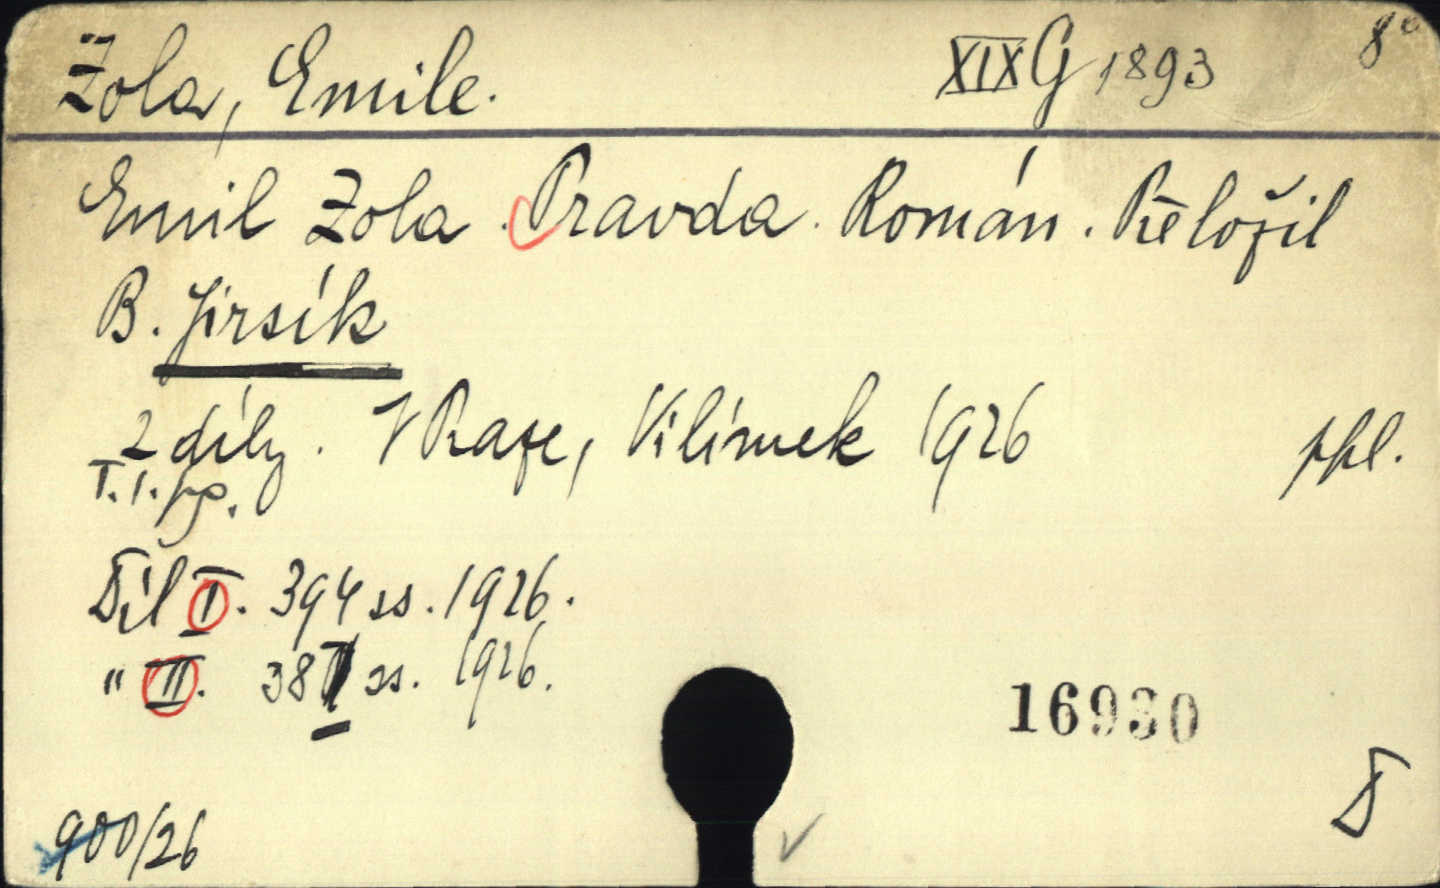 Zola, Emile. XIX G 1893 8°
Emil Zola. Pravda. Román. Přeložil
B. Jirsík
2 díly. V Praze, Vilímek 1926 ppl.
T. 1. pg.
Díl I. 394 ss. 1926.
" II. 38 ss. 1926.
16930
900/26